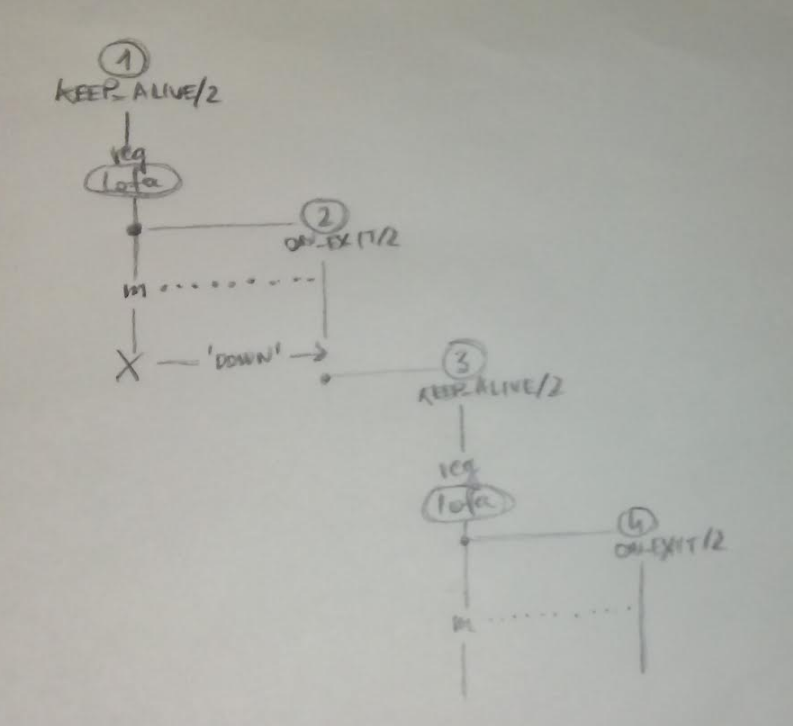 1
KEEP_ALIVE/2
reg
lofa
2
ON_EXIT/2
m
X 'DOWN'
3
KEEP_ALIVE/2
reg
lofa
4
ON_EXIT/2
m